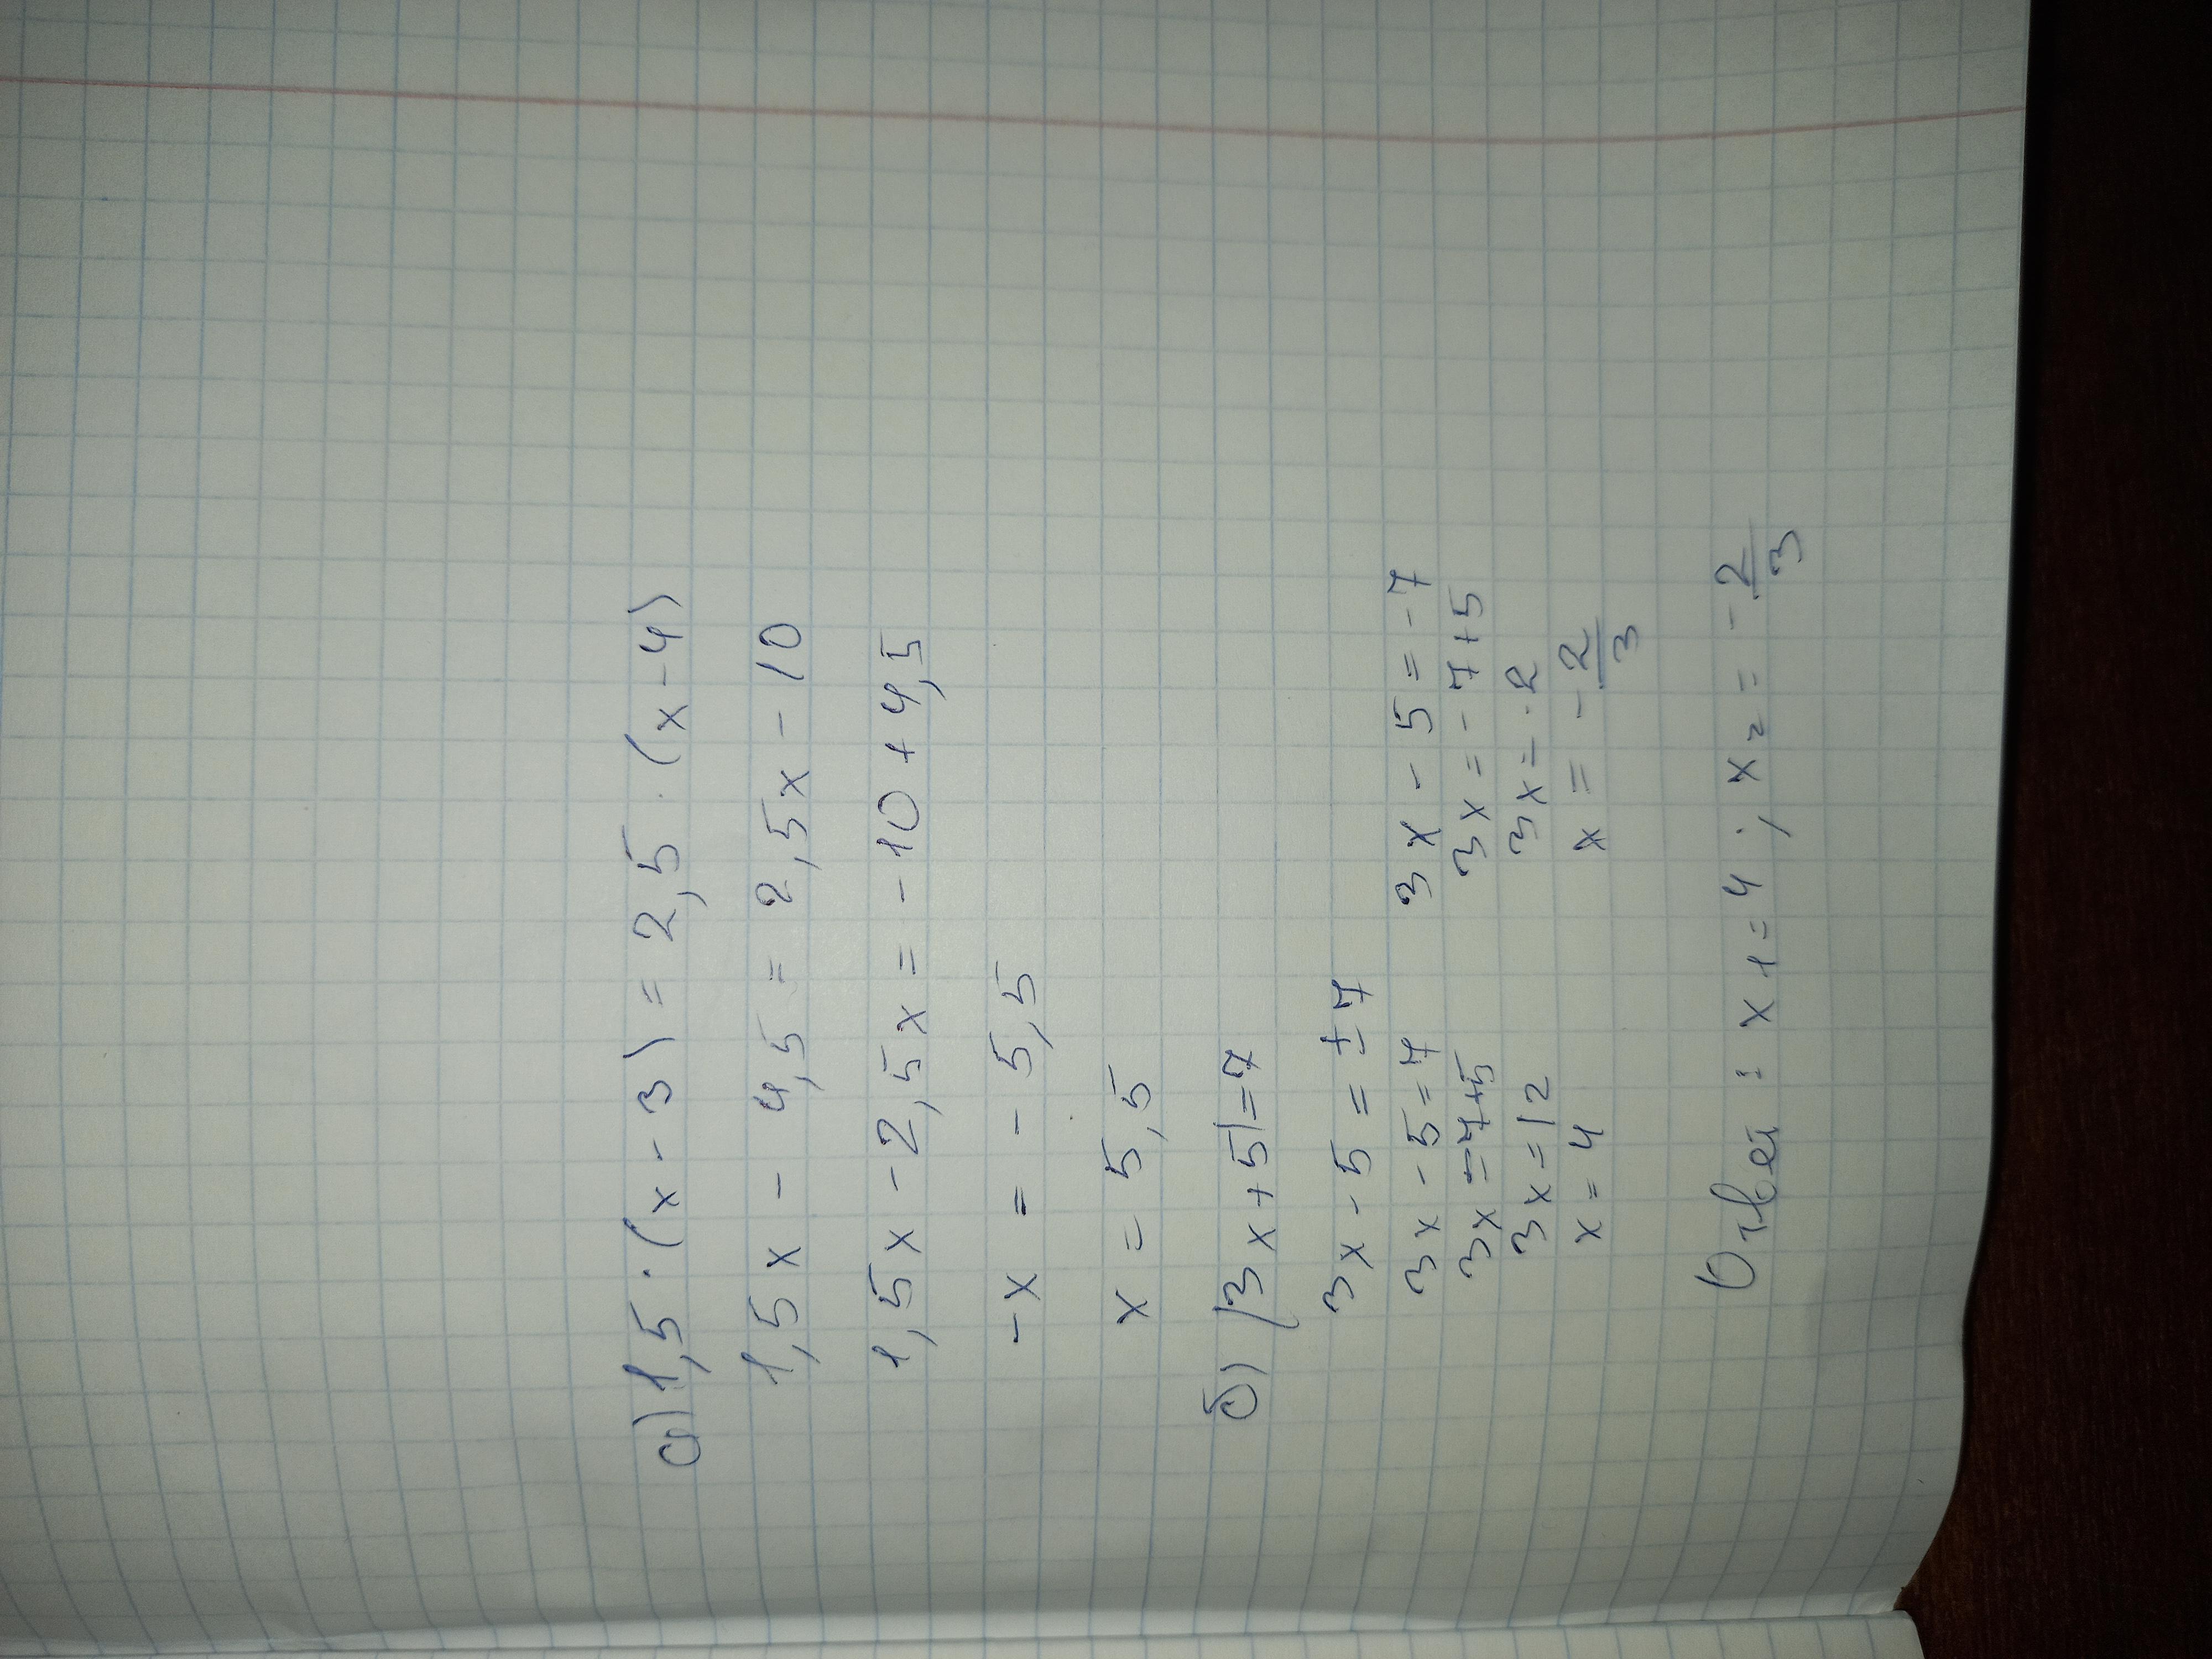 а) 1,5 · (x - 3) = 2,5 · (x - 4)
1,5x - 4,5 = 2,5x - 10
1,5x - 2,5x = - 10 + 4,5
-x = - 5,5
x = 5,5
б) |3x+5|=7
3x - 5 = ± 7
3x - 5 = 7 3x - 5 = - 7
3x = 7+5 3x = - 7+5
3x = 12 3x = - 2
x = 4 x = - 2/3
Ответ: x1=4; x2 = - 2/3